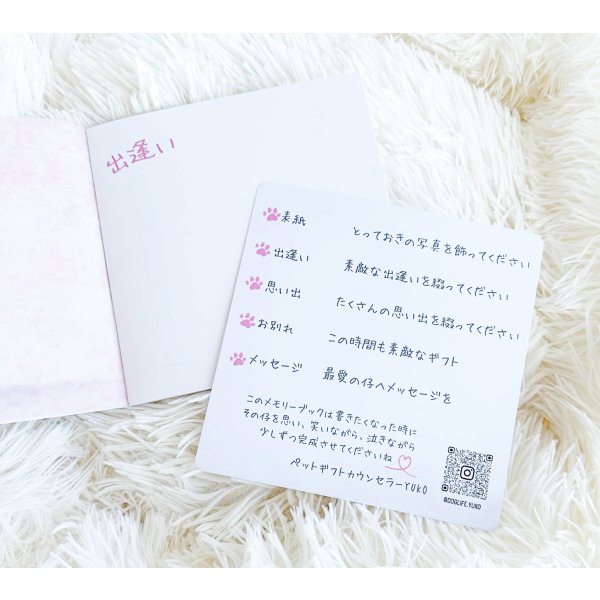 出逢い
表紙 とっておきの写真を飾ってください
出逢い 素敵な出逢いを綴ってください
思い出 たくさんの思い出を綴ってください
お別れ この時間も素敵なギフト
メッセージ 最愛の仔へメッセージを
このメモリーブックは書きたくなった時に
その仔を思い、笑いながら、泣きながら
少しずつ完成させてくださいね
ペットギフトカウンセラーYUKO
@DOGLIFE.YUKO